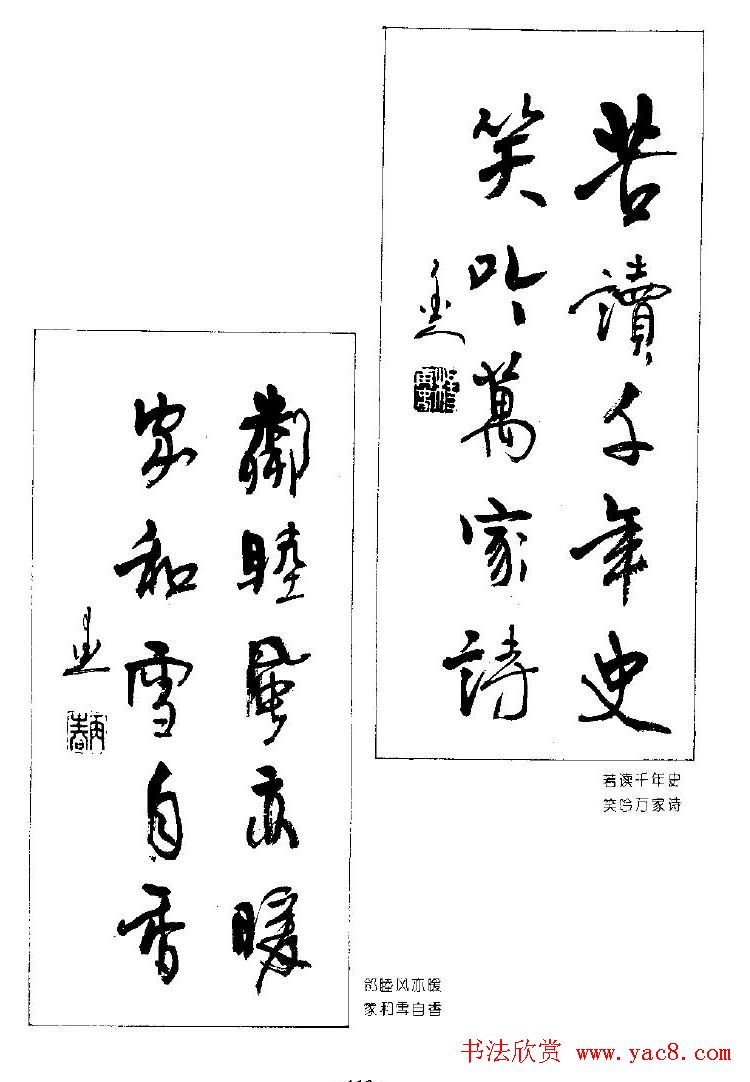 苦讀千年史
笑吟萬家詩
苦读千年史
笑吟万家诗
鄰睦風亦暖
家和雪自香
邻睦风亦暖
家和雪自香
书法欣赏 www.yac8.com